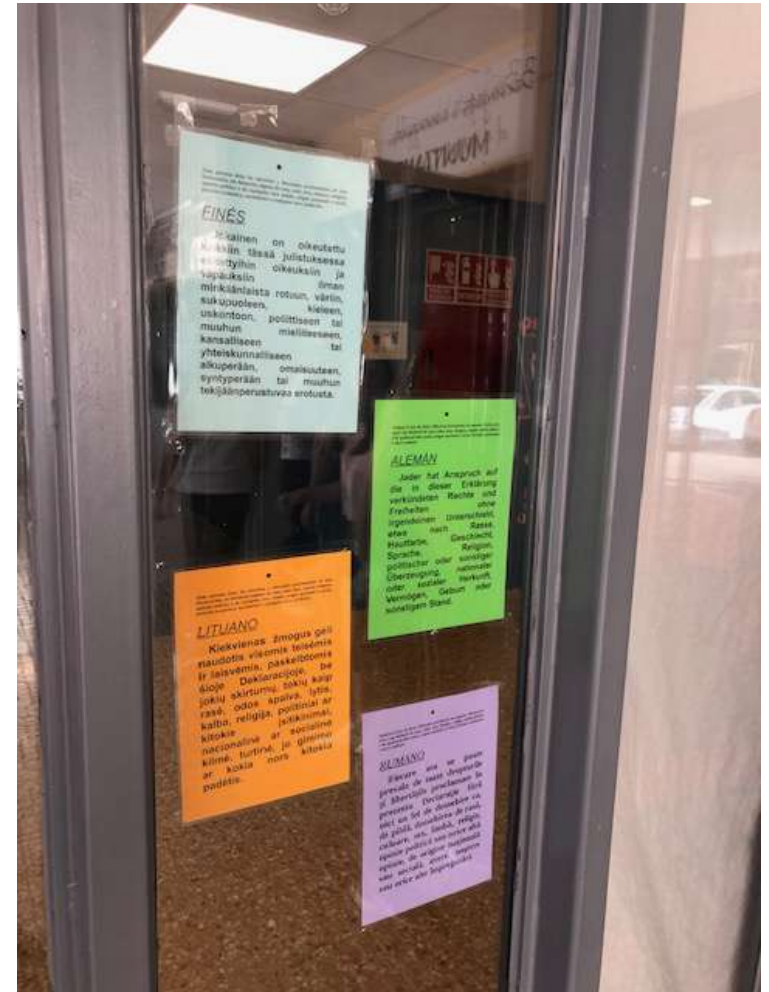 FINÉS
Jokainen on oikeutettu
kaikkiin tässä julistuksessa
esitettyihin oikeuksiin ja
vapauksiin ilman
minkäänlaista rotuun, väriin,
sukupuoleen, kieleen,
uskontoon, poliittiseen tai
muuhun mielipiteeseen,
kansalliseen tai
yhteiskunnalliseen
alkuperään, omaisuuteen,
syntyperään tai muuhun
tekijäänperustuvaa erotusta.
ALEMÁN
Jeder hat Anspruch auf
die in dieser Erklärung
verkündeten Rechte und
Freiheiten ohne
irgendeinen Unterschied,
etwa nach Rasse,
Hautfarbe, Geschlecht,
Sprache, Religion,
politischer oder sonstiger
Überzeugung, nationaler
oder sozialer Herkunft,
Vermögen, Geburt oder
sonstigem Stand.
LITUANO
Kiekvienas žmogus gali
naudotis visomis teisėmis
ir laisvėmis, paskelbtomis
šioje Deklaracijoje, be
jokių skirtumų, tokių kaip
rasė, odos spalva, lytis,
kalba, religija, politiniai ar
kitokie įsitikinimai,
nacionalinė ar socialinė
kilmė, turtinė, jo gimimo
ar kokia nors kitokia
padėtis.
RUMANO
Fiecare om se poate
prevala de toate drepturile
și libertățile proclamate în
prezenta Declarație fără
nici un fel de deosebire ca,
de pildă, deosebirea de rasă,
culoare, sex, limbă, religie,
opinie politică sau orice altă
opinie, de origine națională
sau socială, avere, naștere
sau orice alte împrejurări.